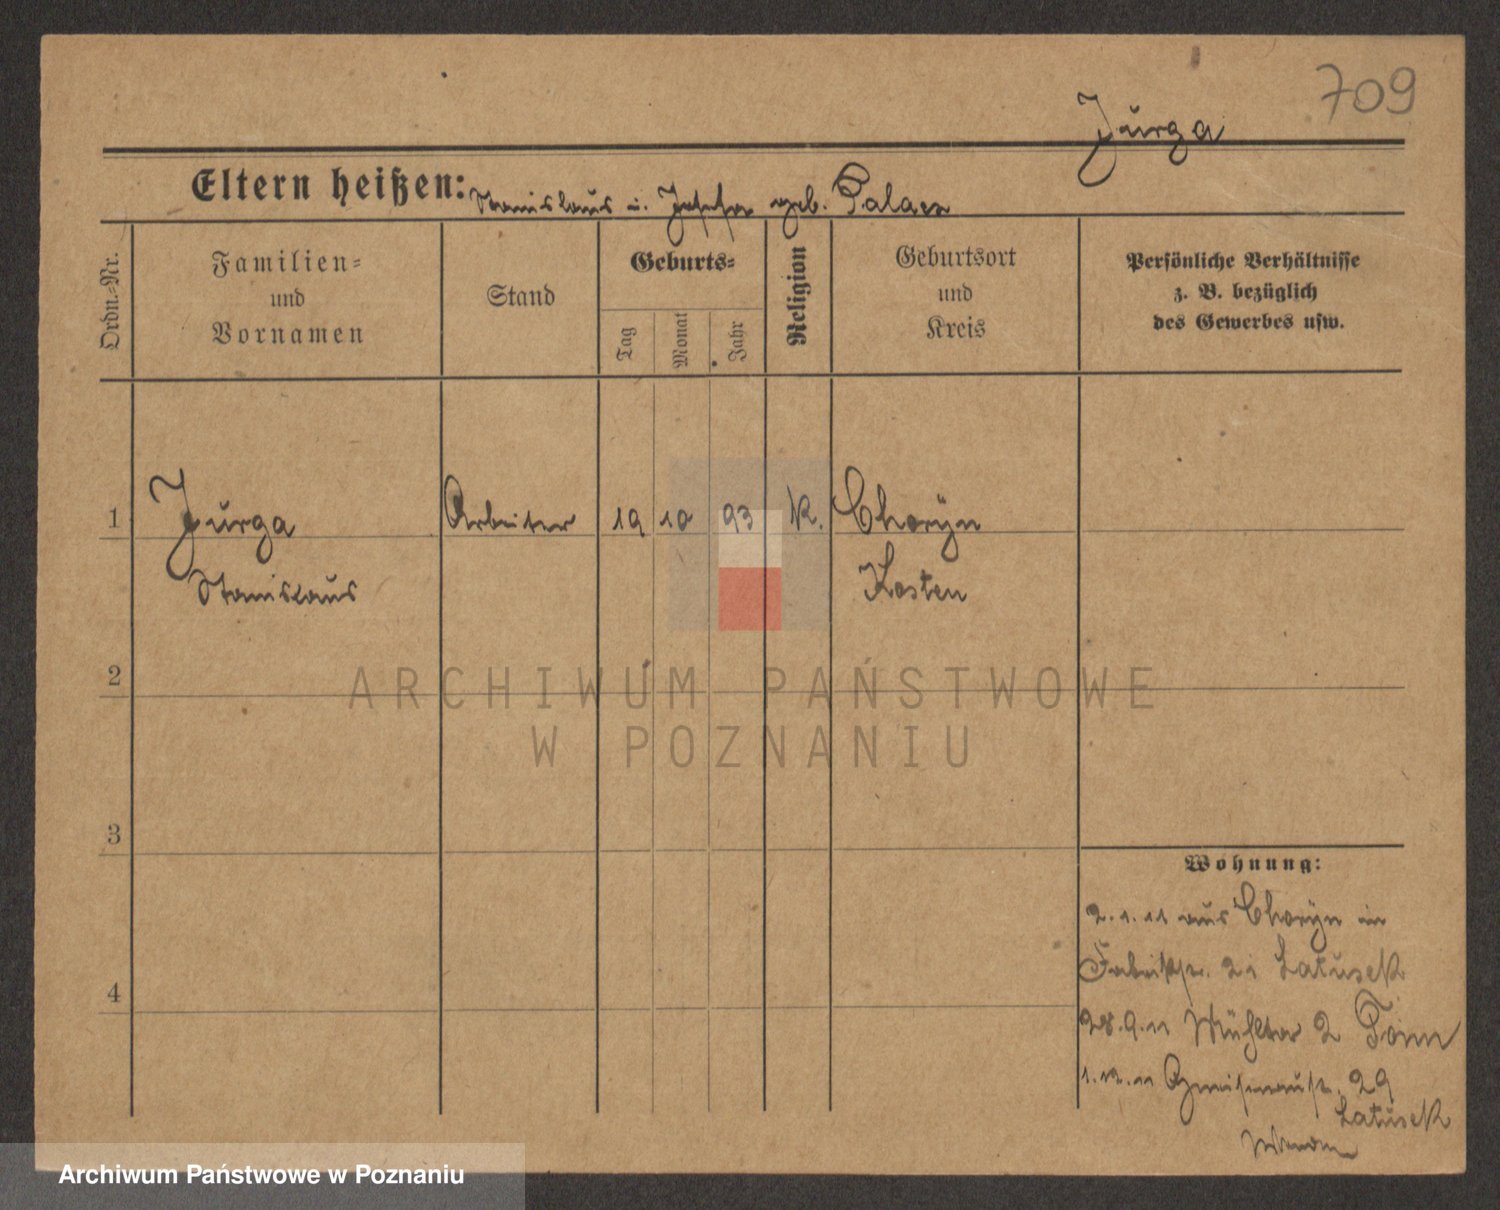 709
Jurga
Eltern heißen: Stanislaus u. Josefa geb. Palacz
Ordn.-Nr.
Familien-
und
Vornamen
Stand
Geburts-
Tag
Monat
Jahr
Religion
Geburtsort
und
Kreis
Persönliche Verhältnisse
z. B. bezüglich
des Gewerbes usw.
1 Jurga Arbeiter 19 10 93 K. Choryn
Stanislaus Kosten
2
3
4
Wohnung:
2.1.11 aus Choryn in
Fabrikstr. 21 Latusek
28.9.11 Mühltor 2 Tom
Gneisenaustr. 29
Latusek
Wenden
ARCHIWUM PAŃSTWOWE
W POZNANIU
Archiwum Państwowe w Poznaniu